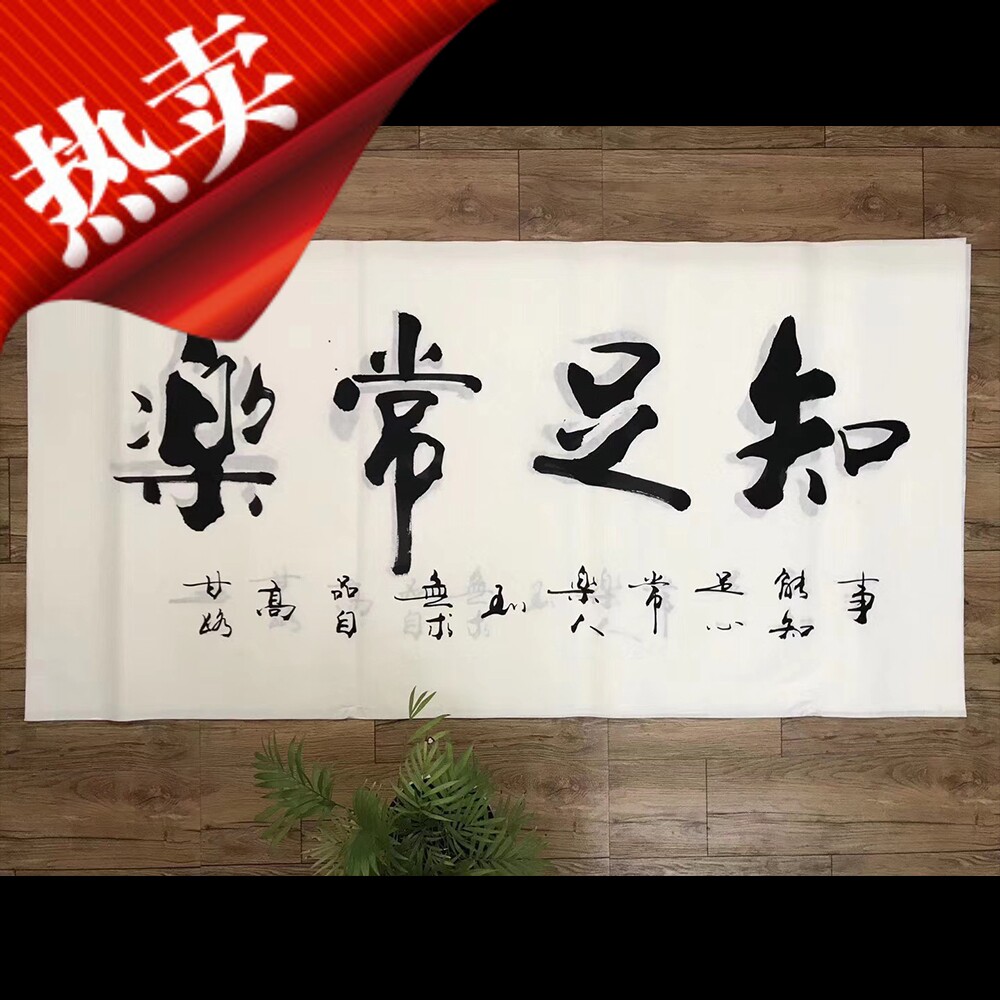 热卖
知足常樂
事能知足心常樂人到無求品自高